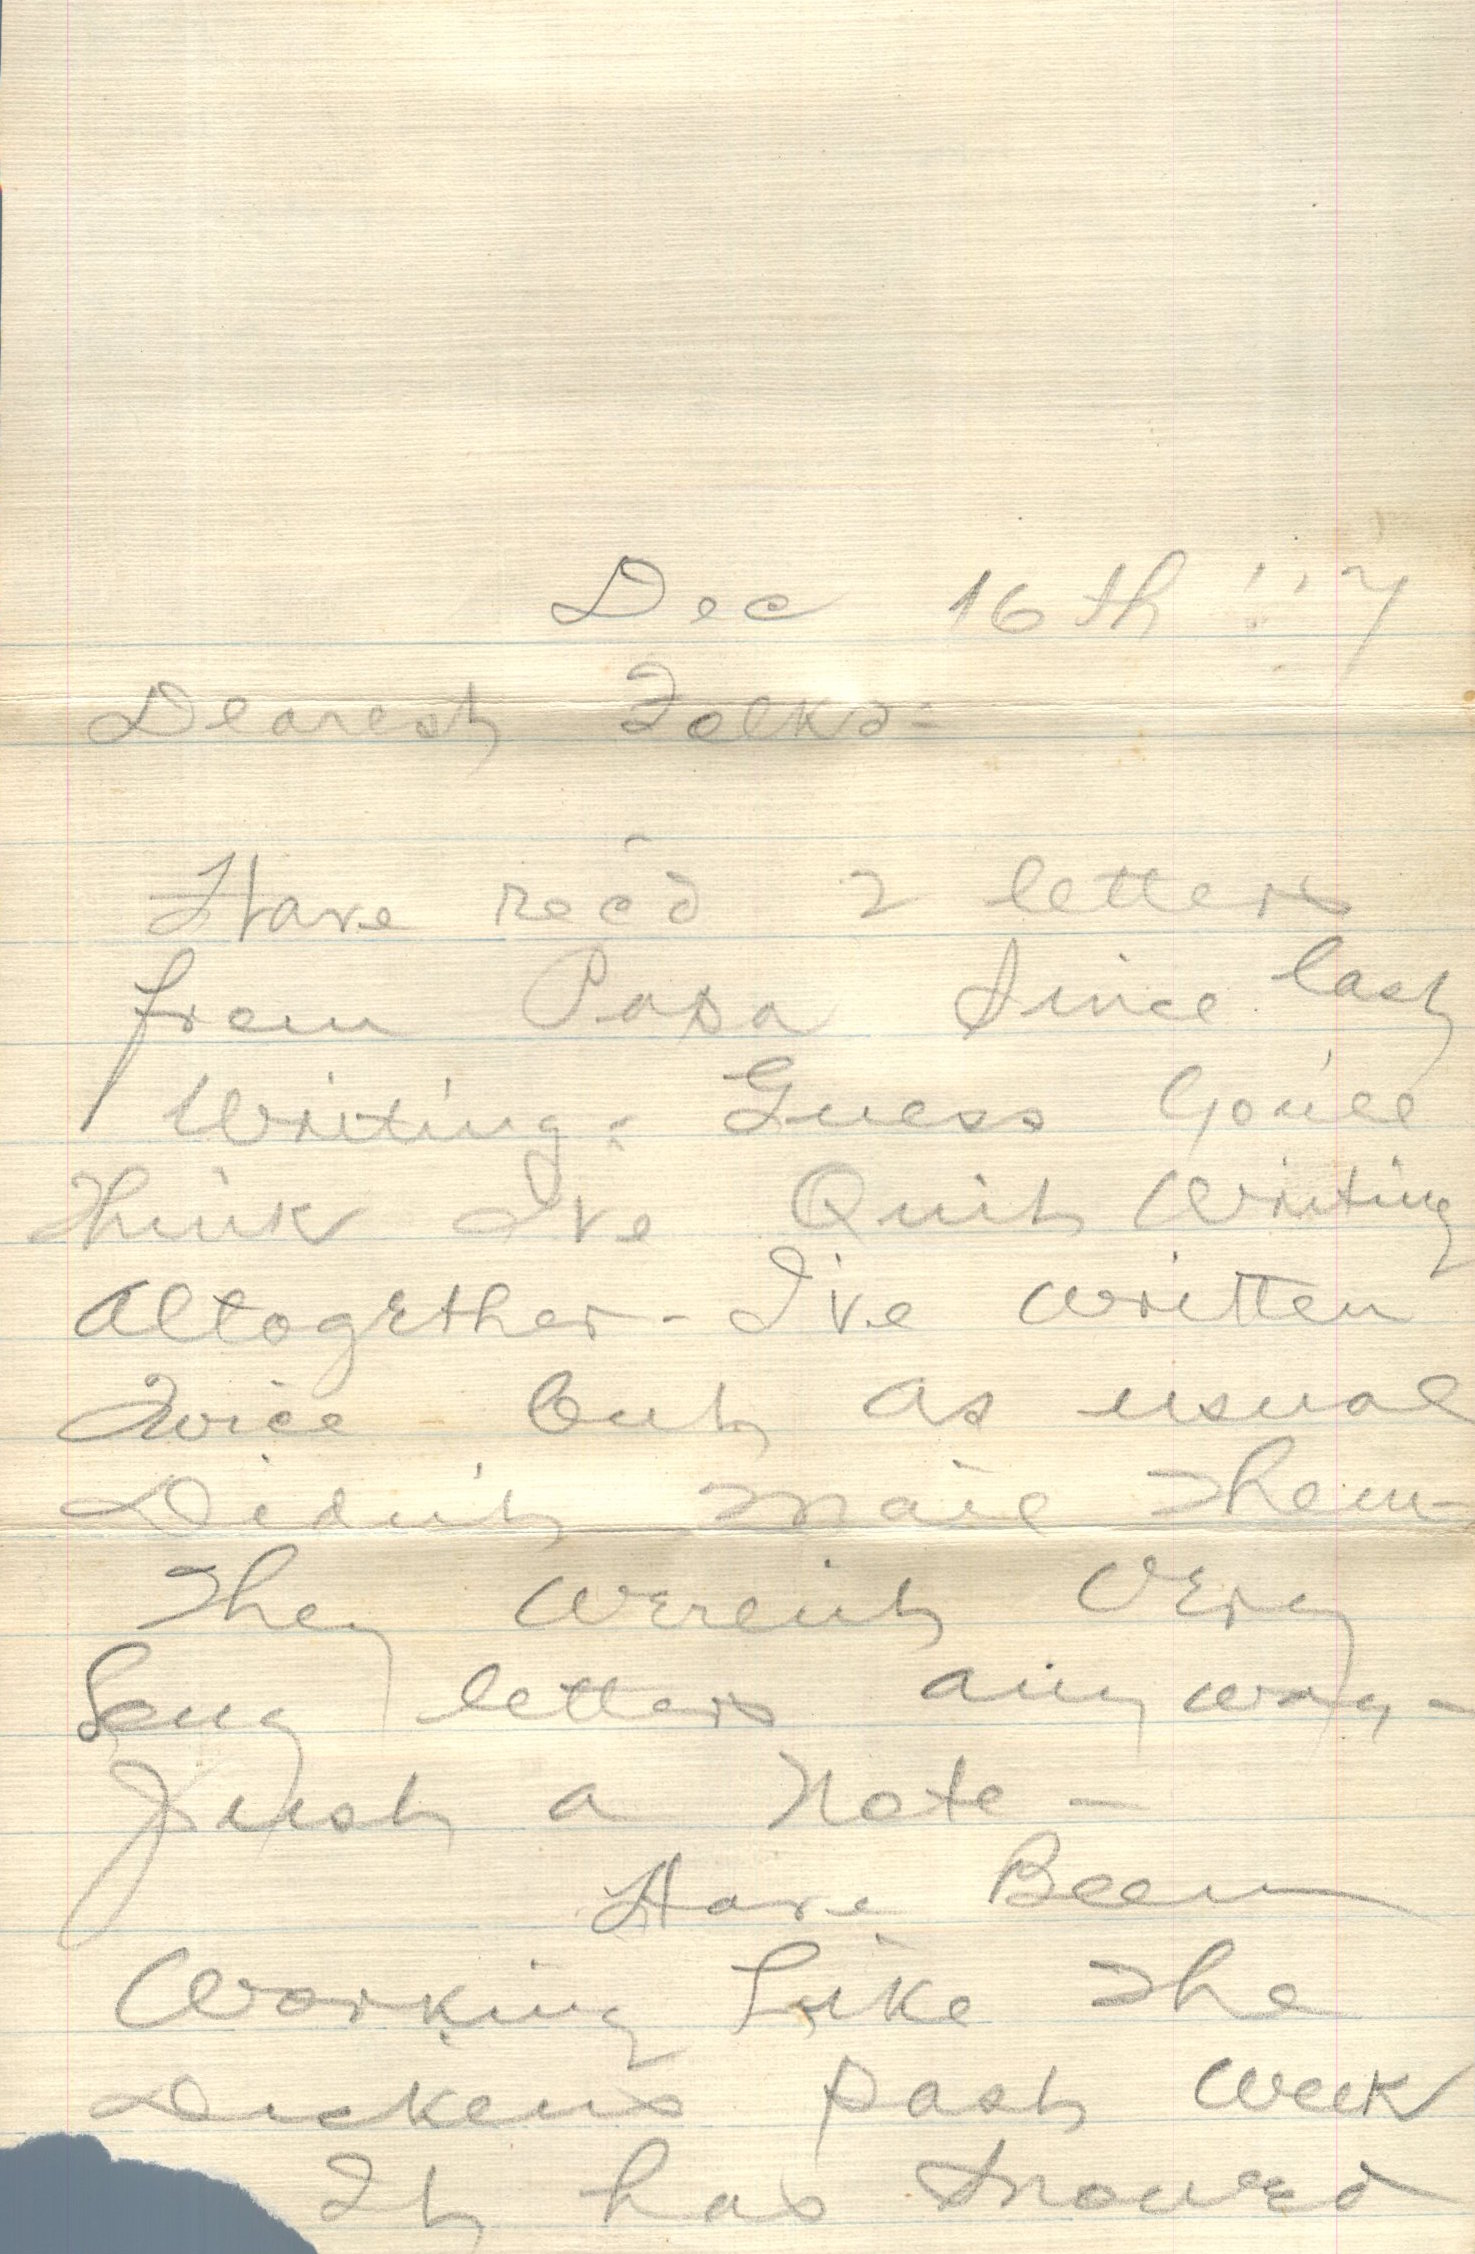 Dec 16th '17
Dearest Folks=
Have rec'd 2 letters
from Papa since last
writing= Guess You'll
Think I've Quit Writing
altogether - I've written
Twice but as usual
Didn't mail Them-
They weren't very
Long letters anyway,-
Just a Note -
Have Been
Working Like The
Dickens past week
It has snowed